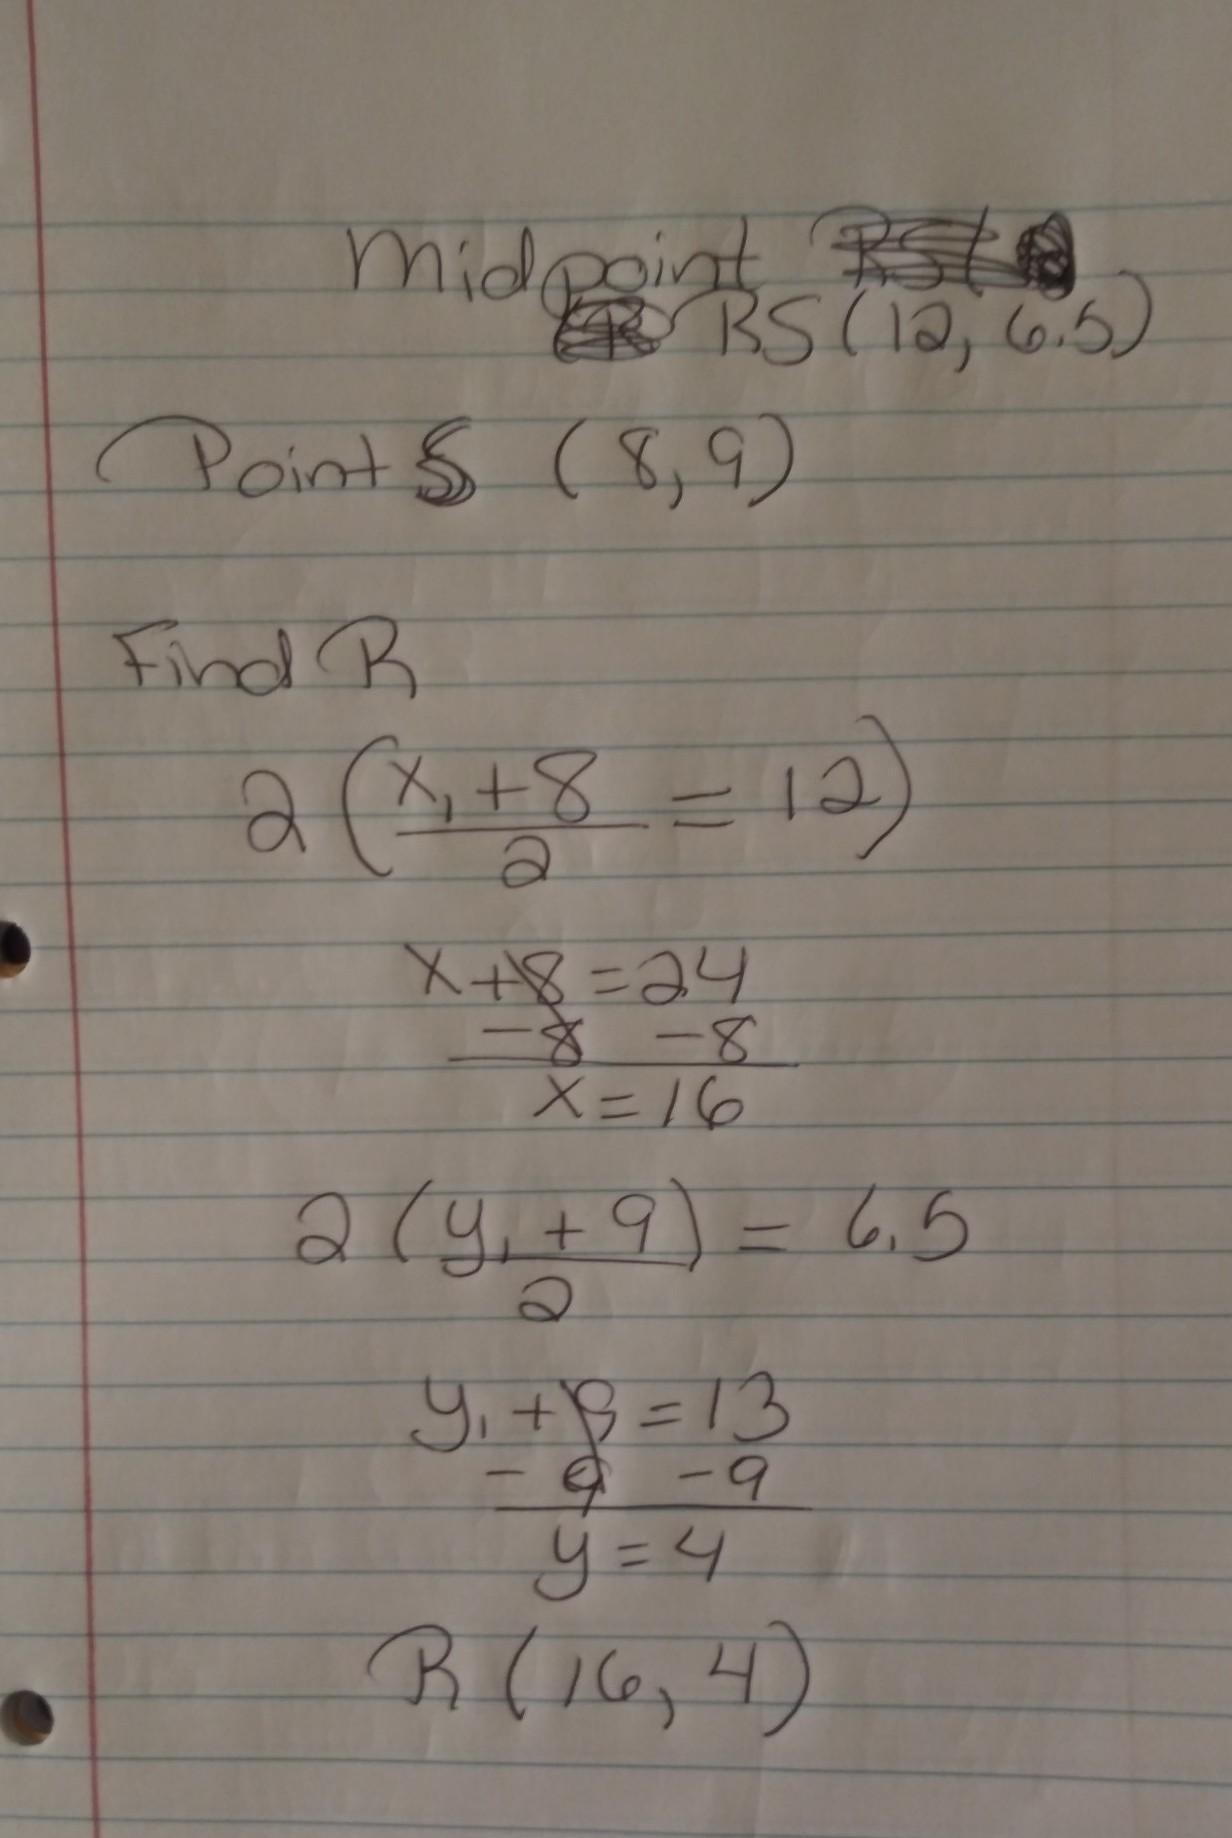 Midpoint
RS (12, 6.5)
Point S (8, 9)
Find R
2 (x₁ + 8 / 2 = 12)
x + 8 = 24
- 8 - 8
x = 16
2 (y₁ + 9) / 2 = 6.5
y₁ + 9 = 13
- 9 - 9
y = 4
R (16, 4)